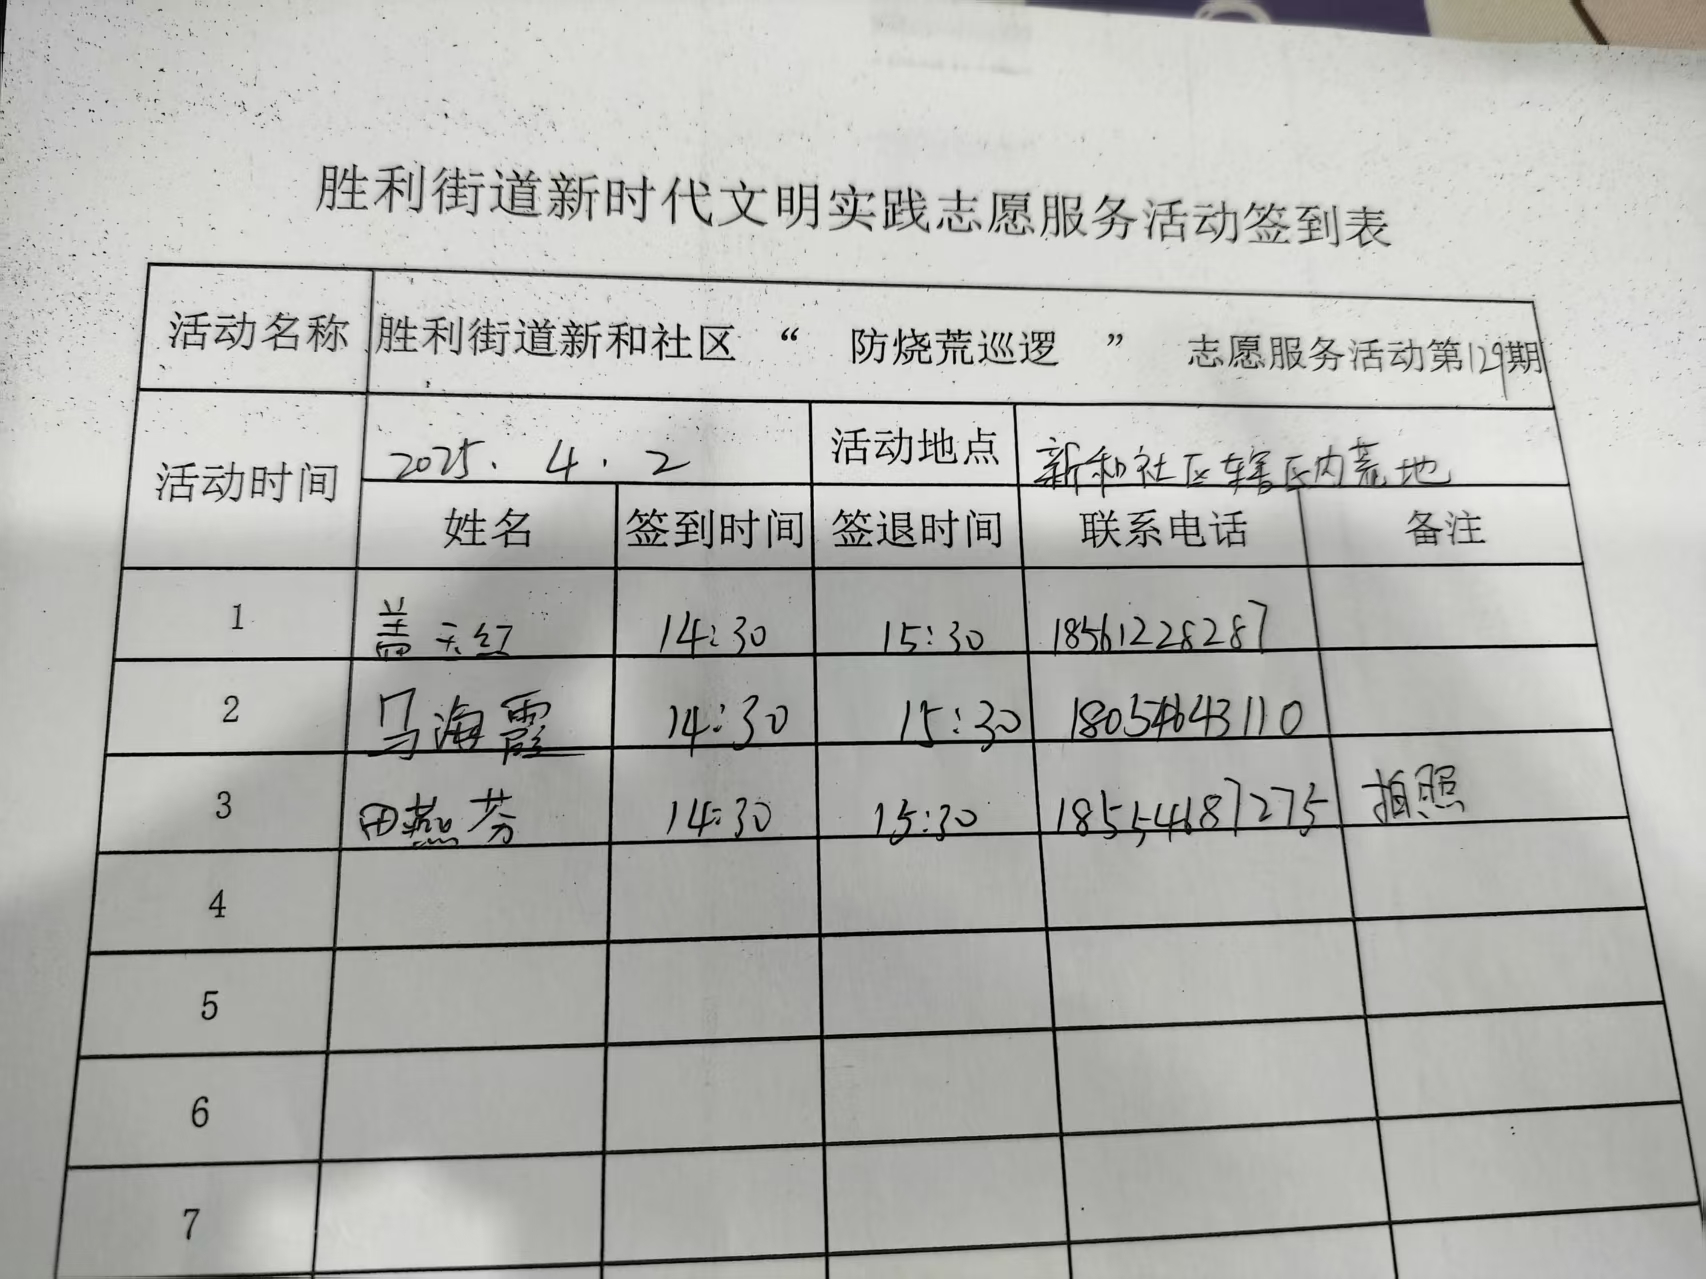 胜利街道新时代文明实践志愿服务活动签到表
活动名称 胜利街道新和社区 “ 防烧荒巡逻 ” 志愿服务活动第129期
活动时间 2025.4.2 活动地点 新和社区辖区内荒地
姓名 签到时间 签退时间 联系电话 备注
1 盖天红 14:30 15:30 18561228287
2 马海霞 14:30 15:30 18054643110
3 田燕芬 14:30 15:30 18554687275 拍照
4
5
6
7